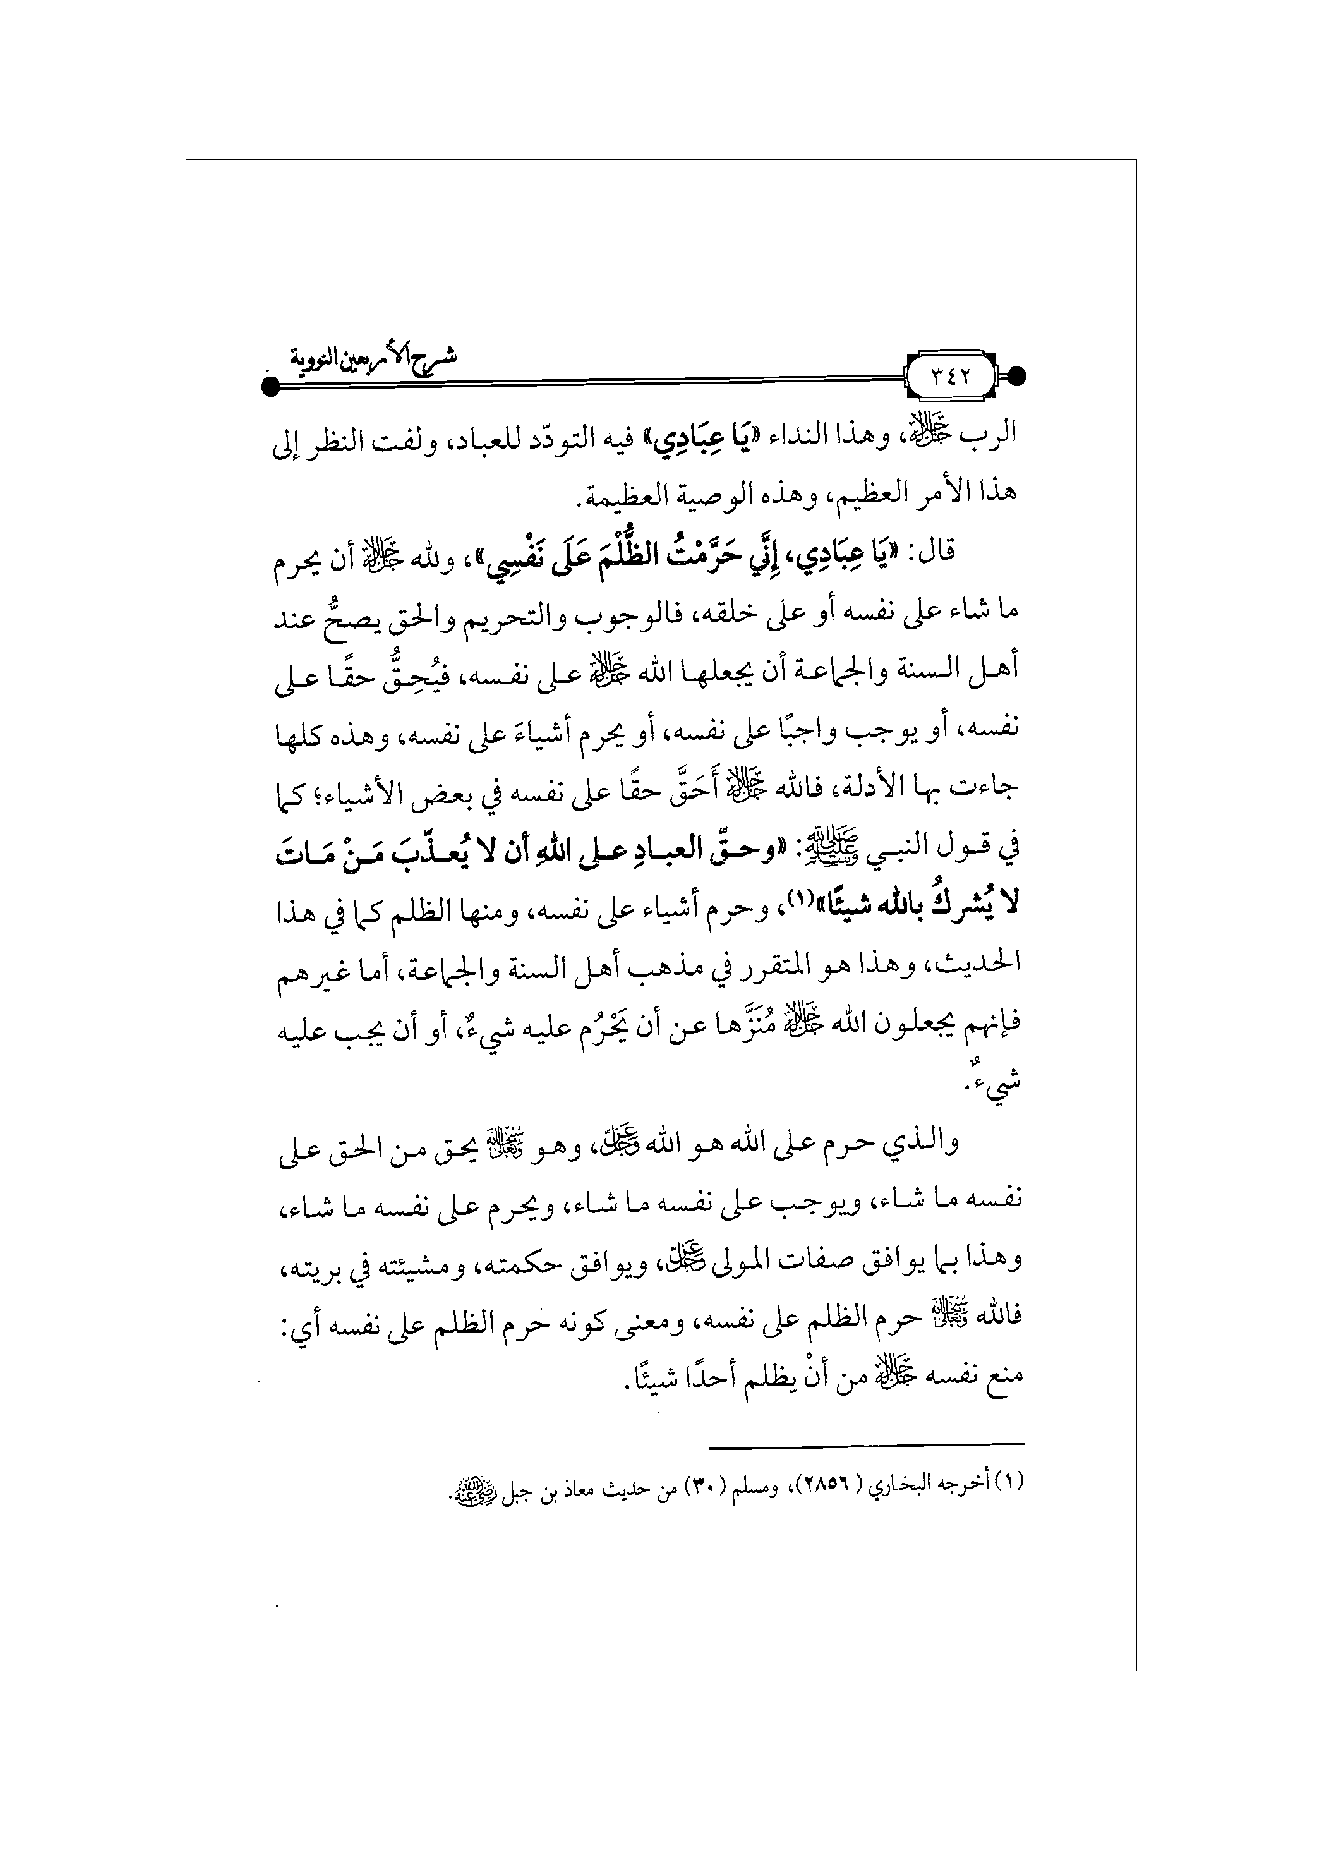 شرح الأربعين النووية
٣٤٢
الرب ﷻ، وهذا النداء «يَا عِبَادِي» فيه التودّد للعباد، ولفت النظر إلى
هذا الأمر العظيم، وهذه الوصية العظيمة.
قال: «يَا عِبَادِي، إِنِّي حَرَّمْتُ الظُّلْمَ عَلَى نَفْسِي»، ولله ﷻ أن يحرم
ما شاء على نفسه أو على خلقه، فالوجوب والتحريم والحق يصحُّ عند
أهل السنة والجماعة أن يجعلها الله ﷻ على نفسه، فيُحِقُّ حقًا على
نفسه، أو يوجب واجبًا على نفسه، أو يحرم أشياءَ على نفسه، وهذه كلها
جاءت بها الأدلة، فالله ﷻ أَحَقَّ حقًا على نفسه في بعض الأشياء؛ كما
في قول النبي ﷺ: «وحقّ العبادِ على اللهِ أن لا يُعذّبَ مَنْ مَاتَ
لا يُشركُ بالله شيئًا»(١)، وحرم أشياء على نفسه، ومنها الظلم كما في هذا
الحديث، وهذا هو المتقرر في مذهب أهل السنة والجماعة، أما غيرهم
فإنهم يجعلون الله ﷻ مُنَزَّها عن أن يَحْرُم عليه شيءٌ، أو أن يجب عليه
شيءٌ.
والذي حرم على الله هو الله عَزَّوَجَلَّ، وهو سُبْحَانَهُ وَتَعَالَى يحق من الحق على
نفسه ما شاء، ويوجب على نفسه ما شاء، ويحرم على نفسه ما شاء،
وهذا بما يوافق صفات المولى عَزَّوَجَلَّ، ويوافق حكمته، ومشيئته في بريته،
فالله سُبْحَانَهُ وَتَعَالَى حرم الظلم على نفسه، ومعنى كونه حرم الظلم على نفسه أي:
منع نفسه ﷻ من أنْ يظلم أحدًا شيئًا.
(١) أخرجه البخاري (٢٨٥٦)، ومسلم (٣٠) من حديث معاذ بن جبل رَضِيَ اللَّهُ عَنْهُ.